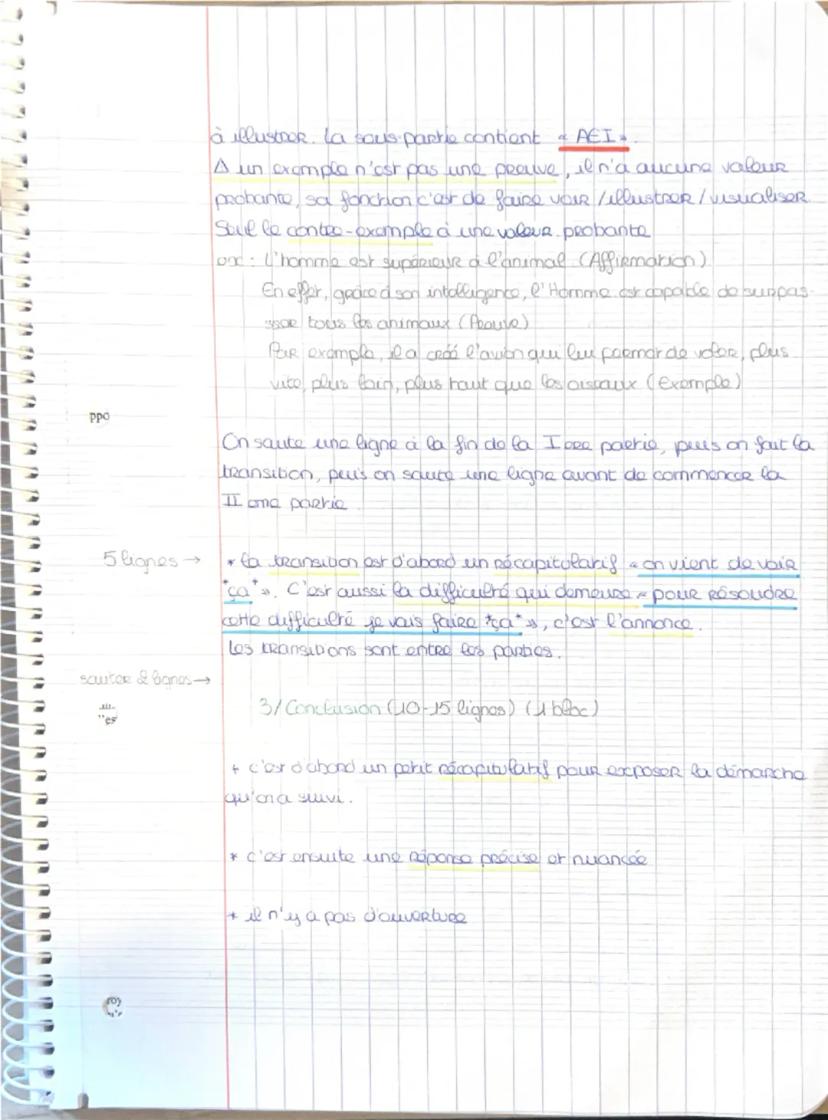 à illustrer. La sous-partie contient « AEI ».
⚠ un exemple n'est pas une preuve, il n'a aucune valeur
probante, sa fonction c'est de faire voir / illustrer / visualiser
Seul le contre-exemple à une valeur probante
ex : L'homme est supérieur à l'animal (Affirmation)
En effet, grâce à son intelligence, l'Homme est capable de surpas-
sser tous les animaux (Preuve)
Par exemple, il a créé l'avion qui lui permet de voler, plus
vite, plus loin, plus haut que les oiseaux (Exemple)
ppo
On saute une ligne à la fin de la Iere partie, puis on fait la
transition, puis on saute une ligne avant de commencer la
IIeme partie
5 lignes →
* la transition est d'abord un récapitulatif « on vient de voir
*ça* ». C'est aussi la difficulté qui demeure « pour résoudre
cette difficulté je vais faire *ça* », c'est l'annonce.
Les transitions sont entre les parties.
sauter 2 lignes →
"es
3/ Conclusion (10-15 lignes) (1 bloc)
+ c'est d'abord un petit récapitulatif pour exposer la démarche
qu'on a suivi.
* c'est ensuite une réponse précise et nuancée
+ il n'y a pas d'ouverture